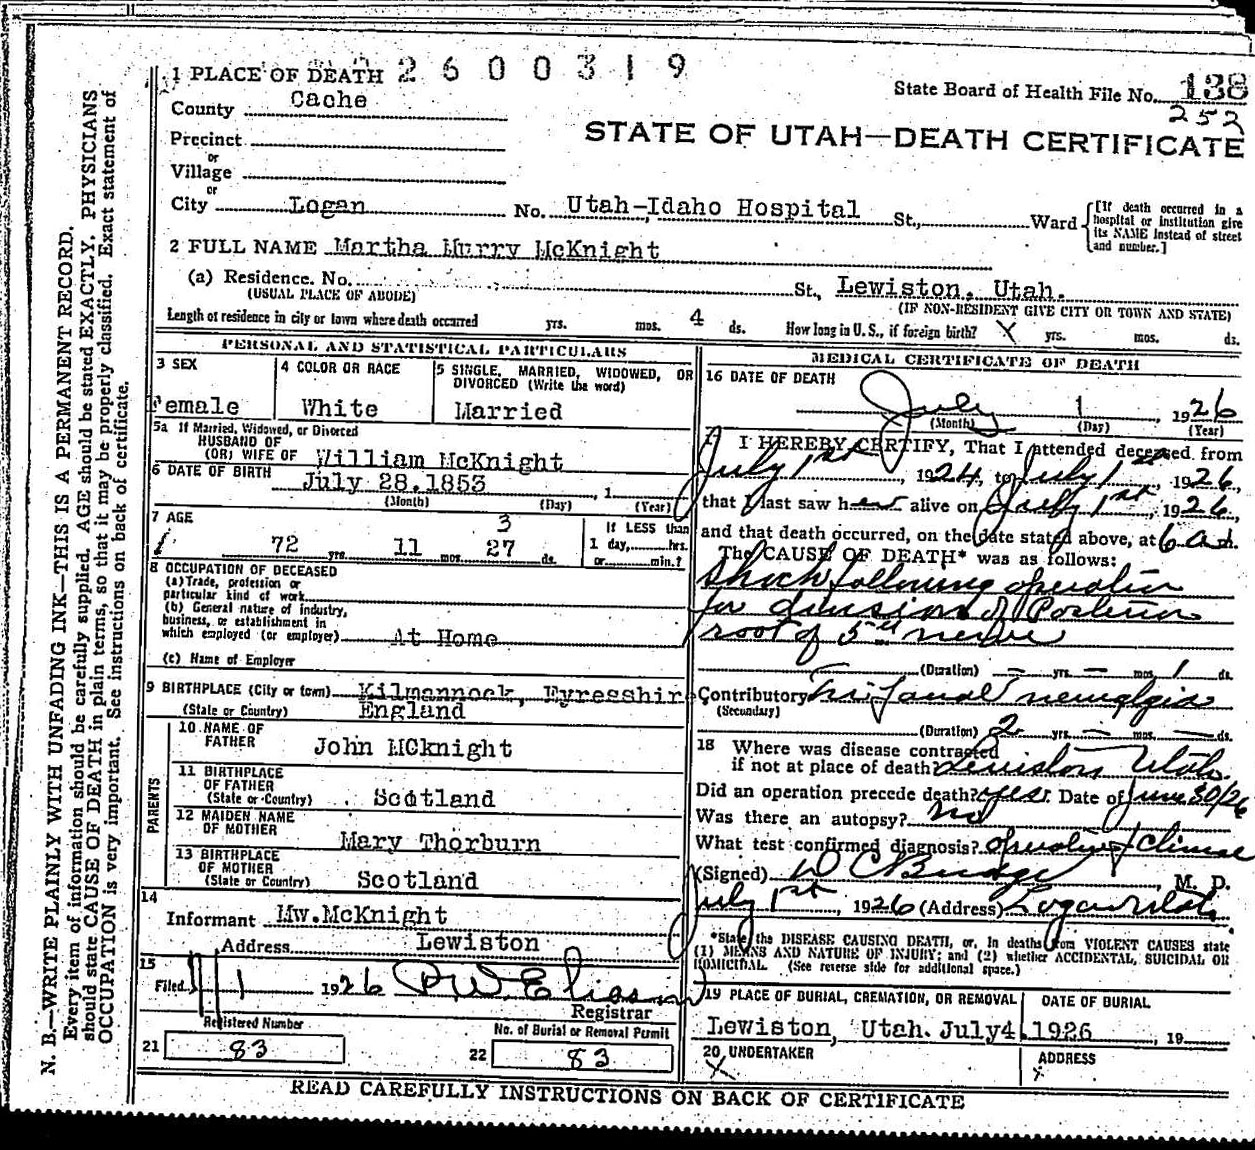 N. B.—WRITE PLAINLY WITH UNFADING INK—THIS IS A PERMANENT RECORD.
Every item of information should be carefully supplied. AGE should be stated EXACTLY. PHYSICIANS
should state CAUSE OF DEATH in plain terms, so that it may be properly classified. Exact statement of
OCCUPATION is very important. See instructions on back of certificate.
2600319
State Board of Health File No. 138
252
STATE OF UTAH—DEATH CERTIFICATE
1 PLACE OF DEATH
County Cache
Precinct
or
Village
or
City Logan No. Utah-Idaho Hospital St., Ward
[If death occurred in a
hospital or institution give
its NAME instead of street
and number.]
2 FULL NAME Martha Murry McKnight
(a) Residence. No. St., Lewiston, Utah.
(USUAL PLACE OF ABODE) (IF NON-RESIDENT GIVE CITY OR TOWN AND STATE)
Length of residence in city or town where death occurred yrs. mos. 4 ds. How long in U. S., if foreign birth? X yrs. mos. ds.
PERSONAL AND STATISTICAL PARTICULARS
3 SEX
Female
4 COLOR OR RACE
White
5 SINGLE, MARRIED, WIDOWED, OR
DIVORCED (Write the word)
Married
5a If Married, Widowed, or Divorced
HUSBAND OF
(OR) WIFE OF William McKnight
6 DATE OF BIRTH July 28,1853 , 1
(Month) (Day) (Year)
7 AGE
3
72 yrs. 11 mos. 27 ds.
If LESS than
1 day, hrs.
or min.?
8 OCCUPATION OF DECEASED
(a) Trade, profession or
particular kind of work
(b) General nature of industry,
business, or establishment in
which employed (or employer) At Home
(c) Name of Employer
9 BIRTHPLACE (City or town) Kilmannock, Eyresshir
(State or Country) England
PARENTS
10 NAME OF
FATHER John MCknight
11 BIRTHPLACE
OF FATHER
(State or Country) Scotland
12 MAIDEN NAME
OF MOTHER Mary Thorburn
13 BIRTHPLACE
OF MOTHER
(State or Country) Scotland
14
Informant Mw.McKnight
Address Lewiston
15
Filed 1 1926
Registrar
Registered Number
21 83
No. of Burial or Removal Permit
22 83
MEDICAL CERTIFICATE OF DEATH
16 DATE OF DEATH
July 1 , 1926
(Month) (Day) (Year)
I HEREBY CERTIFY, That I attended deceased from
July 1st, 1924, to July 1st 1926,
that I last saw her alive on July 1st, 1926,
and that death occurred, on the date stated above, at 6 a m.
The CAUSE OF DEATH* was as follows:
Shock following operation
for division of Posterior
root of 5th nerve
(Duration) — yrs. — mos. 1 ds.
Contributory Tri facial neuralgia
(Secondary)
(Duration) 2 yrs. — mos. — ds.
18 Where was disease contracted
if not at place of death? Lewiston Utah.
Did an operation precede death? yes. Date of June 30/26
Was there an autopsy? No
What test confirmed diagnosis?
(Signed) D C Budge, M. D.
July 1st, 1926 (Address) Logan Utah
*State the DISEASE CAUSING DEATH, or, in deaths from VIOLENT CAUSES state
(1) MEANS AND NATURE OF INJURY; and (2) whether ACCIDENTAL, SUICIDAL OR
HOMICIDAL. (See reverse side for additional space.)
19 PLACE OF BURIAL, CREMATION, OR REMOVAL
Lewiston, Utah.
DATE OF BURIAL
July4,1926 , 19
20 UNDERTAKER
X
ADDRESS
X
READ CAREFULLY INSTRUCTIONS ON BACK OF CERTIFICATE